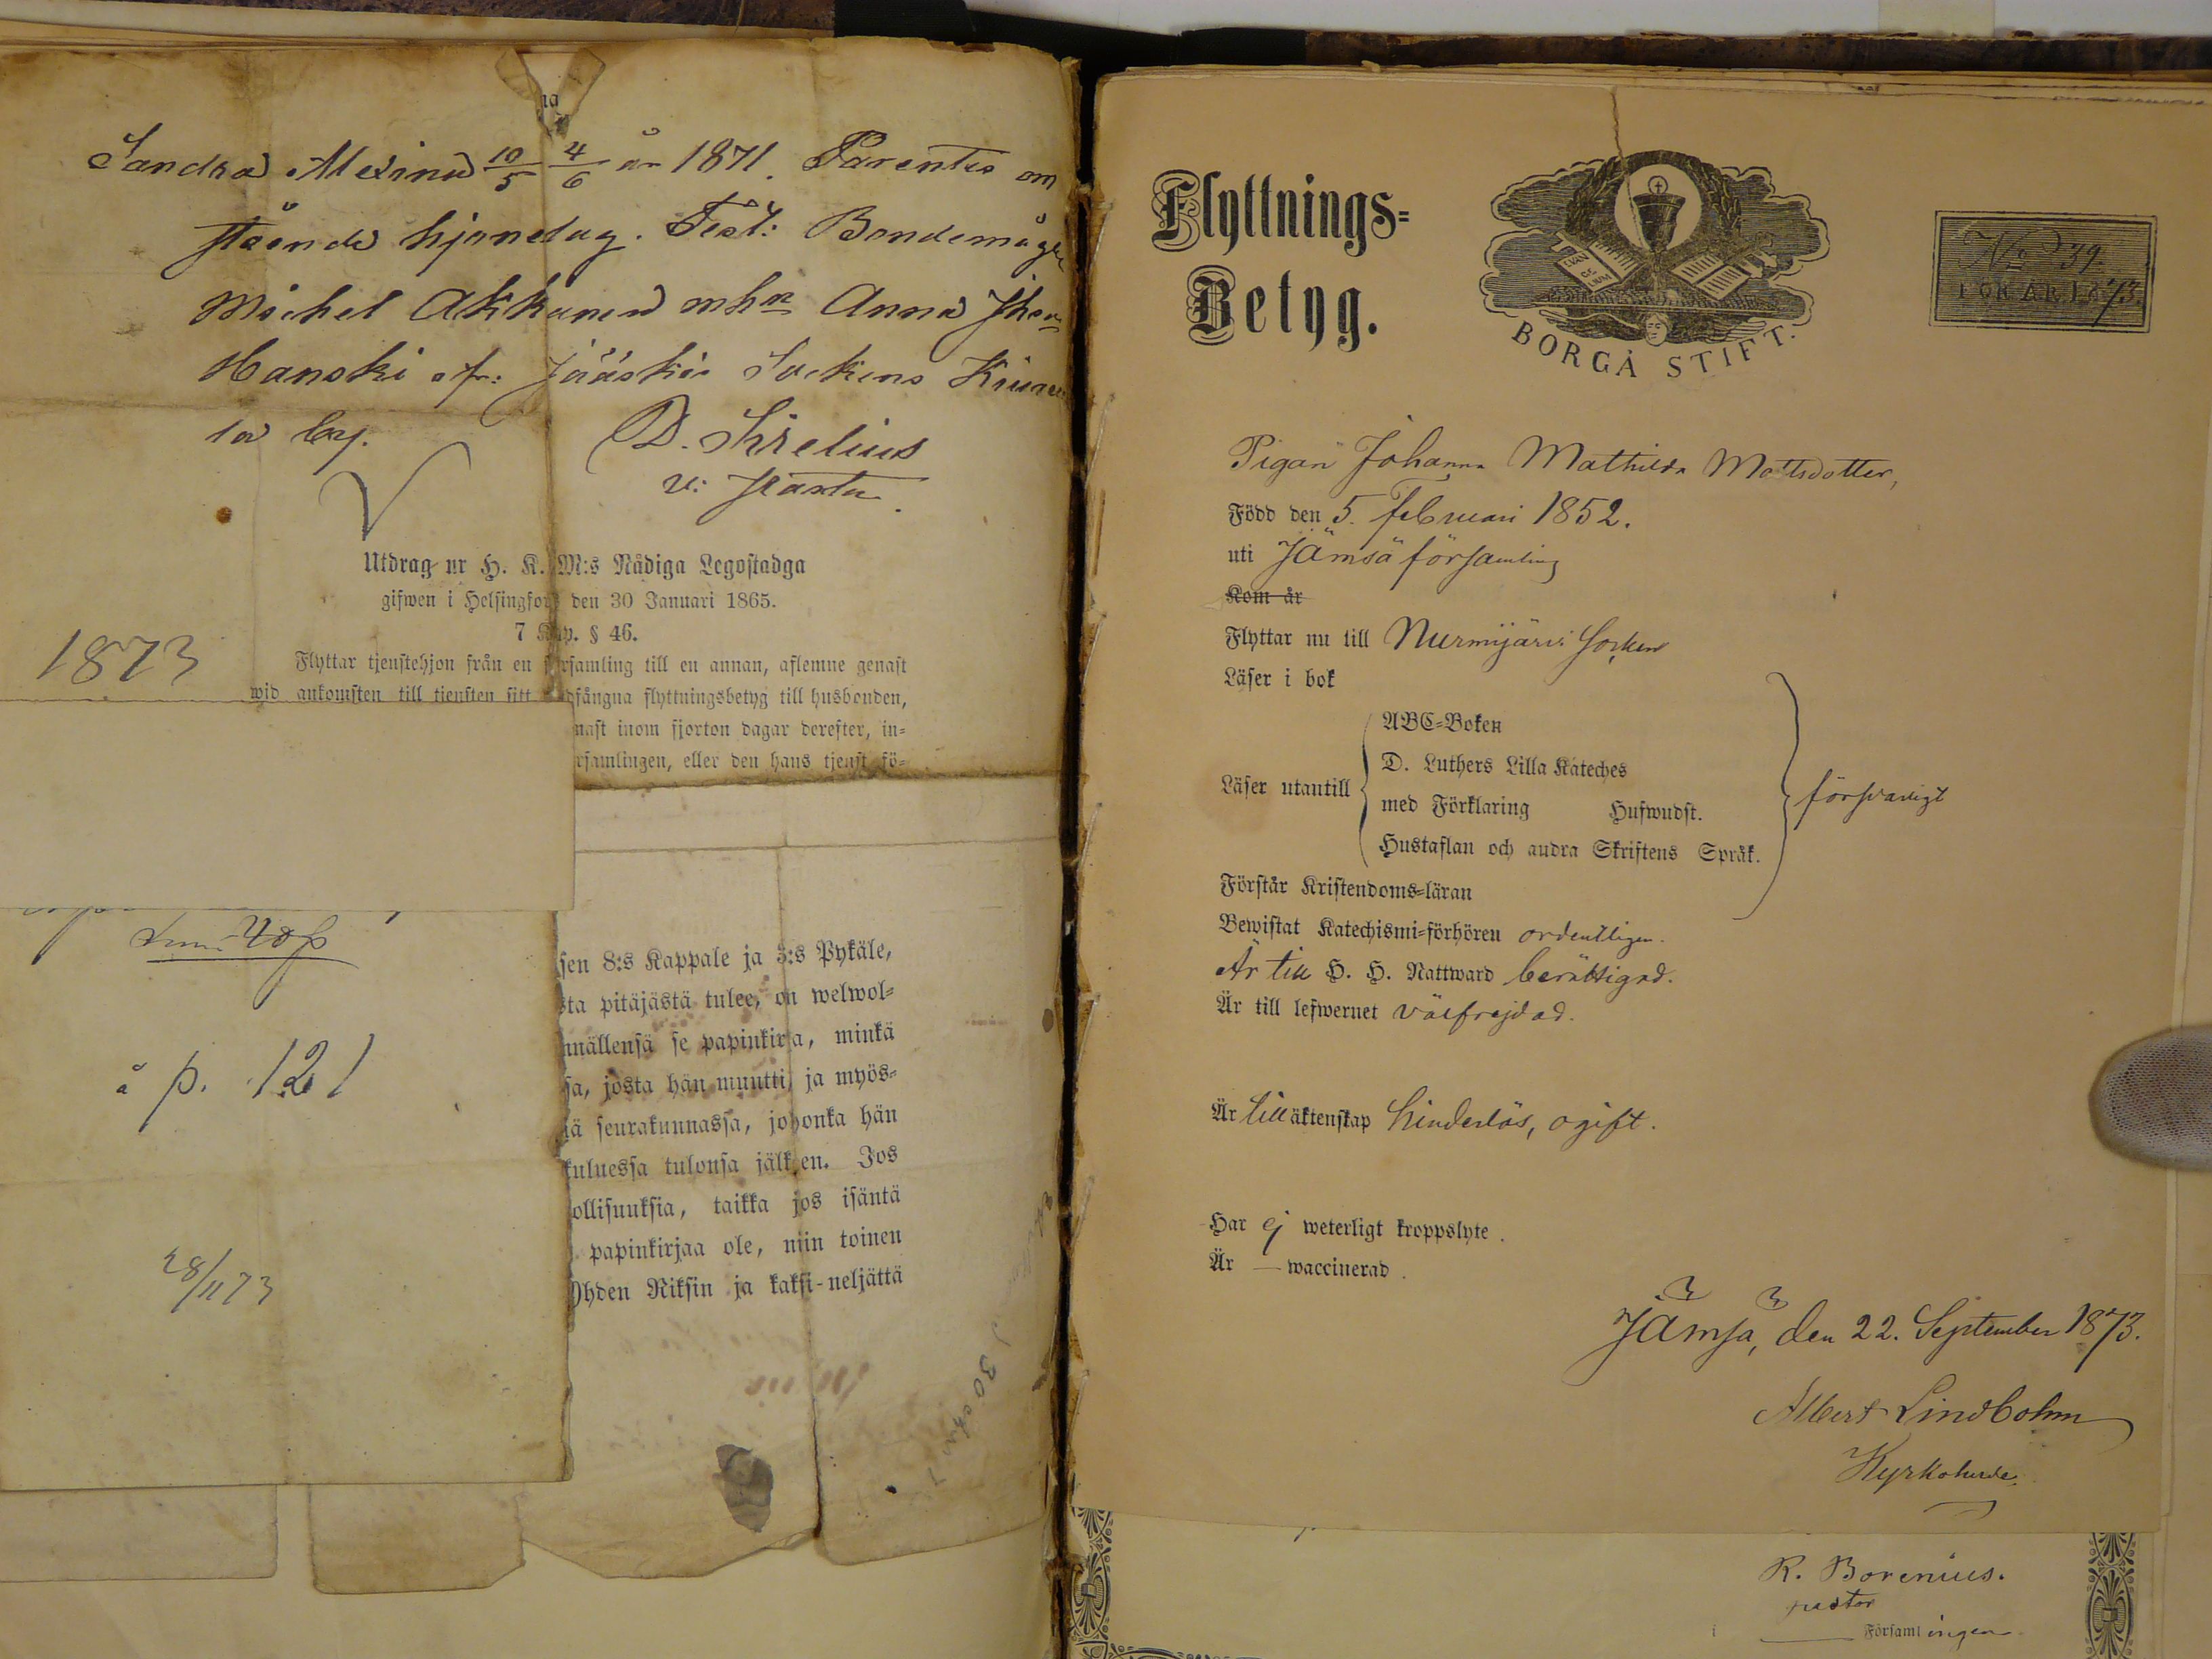 Sandra Alexina 10/5 4/6 år 1871. Parentes om
stående hjonelag. Test: Bondemågen
Michel Akkanen m hn Anna
Hanski fr: Jääskis Sockens
la by.
D. Sirelius
v: Pastor.
Utdrag ur H. K. M:s Nådiga Legostadga
gifwen i Helsingfors den 30 Januari 1865.
7 Kap. § 46.
Flyttar tjenstehjon från en församling till en annan, aflemne genast
wid ankomsten till tjensten sitt undfångna flyttningsbetyg till husbonden,
nast inom fjorton dagar derefter, in=
rsamlingen, eller den hans tjenst fö=
1873
40 p
å p. 121
28/11 73
sen 8:s Kappale ja 3:s Pykäle,
sta pitäjästä tulee, on welwol=
nnällensä se papinkirja, minkä
sa, josta hän muutti, ja myös=
iä seurakunnassa, johonka hän
kuluessa tulonsa jälkeen. Jos
ollisuuksia, taikka jos isäntä
papinkirjaa ole, niin toinen
Yhden Riksin ja kaksi-neljättä
Flyttnings=
Betyg.
EVAN
GE
LIUM
BORGÅ STIFT.
No 39.
FÖR ÅR 1873.
Pigan Johanna Mathilda Mattsdotter,
Född den 5. Februari 1852.
uti Jämsä församling
Kom år
Flyttar nu till Nurmijärvi Socken
Läser i bok
ABC=Boken
D. Luthers Lilla Kateches
Läser utantill
med Förklaring Hufwudst.
försvarligt
Hustaflan och andra Skriftens Språk.
Förstår Kristendoms=läran
Bewistat Katechismi=förhören ordentligen.
Är till H. H. Nattward berättigad.
Är till lefwernet välfrejdad.
Är till äktenskap hinderlös, ogift.
Har ej weterligt kroppslyte.
Är — waccinerad.
Jämsä, den 22. September 1873.
Albert Lindbohm
Kyrkoherde.
R. Borenius.
pastor
i Församlingen